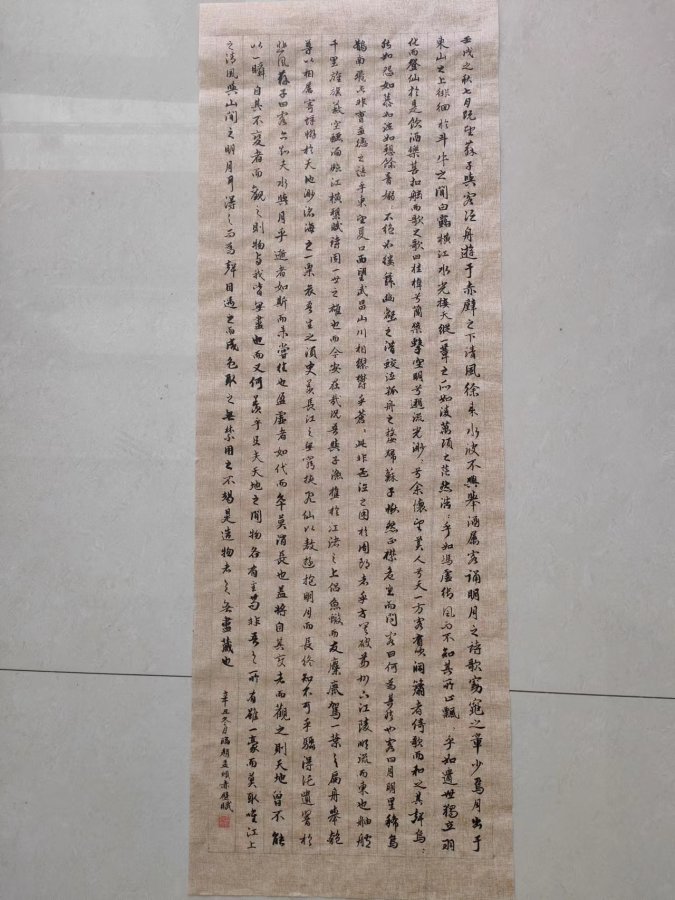 壬戌之秋七月既望蘇子與客泛舟遊于赤壁之下清風徐來水波不興舉酒屬客誦明月之詩歌窈窕之章少焉月出于
東山之上徘徊於斗牛之間白露橫江水光接天縱一葦之所如淩萬頃之茫然浩乎如馮虛御風而不知其所止飄乎如遺世獨立羽
化而登仙於是飲酒樂甚扣舷而歌之歌曰桂棹兮蘭槳擊空明兮溯流光渺兮余懷望美人兮天一方客有吹洞簫者倚歌而和之其聲嗚
然如怨如慕如泣如愬餘音嫋不絕如縷舞幽壑之潛蛟泣孤舟之嫠婦蘇子愀然正襟危坐而問客曰何為其然也客曰月明星稀烏
鵲南飛此非曹孟德之詩乎東望夏口西望武昌山川相繆鬱乎蒼此非孟德之困於周郎者乎方其破荊州下江陵順流而東也舳艫
千里旌旗蔽空釃酒臨江橫槊賦詩固一世之雄也而今安在哉況吾與子漁樵於江渚之上侶魚蝦而友麋鹿駕一葉之扁舟舉匏
尊以相屬寄蜉蝣於天地渺滄海之一粟哀吾生之須臾羨長江之無窮挾飛仙以遨遊抱明月而長終知不可乎驟得託遺響於
悲風蘇子曰客亦知夫水與月乎逝者如斯而未嘗往也盈虛者如代而卒莫消長也蓋將自其變者而觀之則天地曾不能
以一瞬自其不變者而觀之則物與我皆無盡也而又何羨乎且夫天地之間物各有主苟非吾之所有雖一毫而莫取唯江上
之清風與山間之明月耳得之而為聲目遇之而成色取之無禁用之不竭是造物者之無盡藏也
辛丑冬月臨趙孟頫赤壁賦